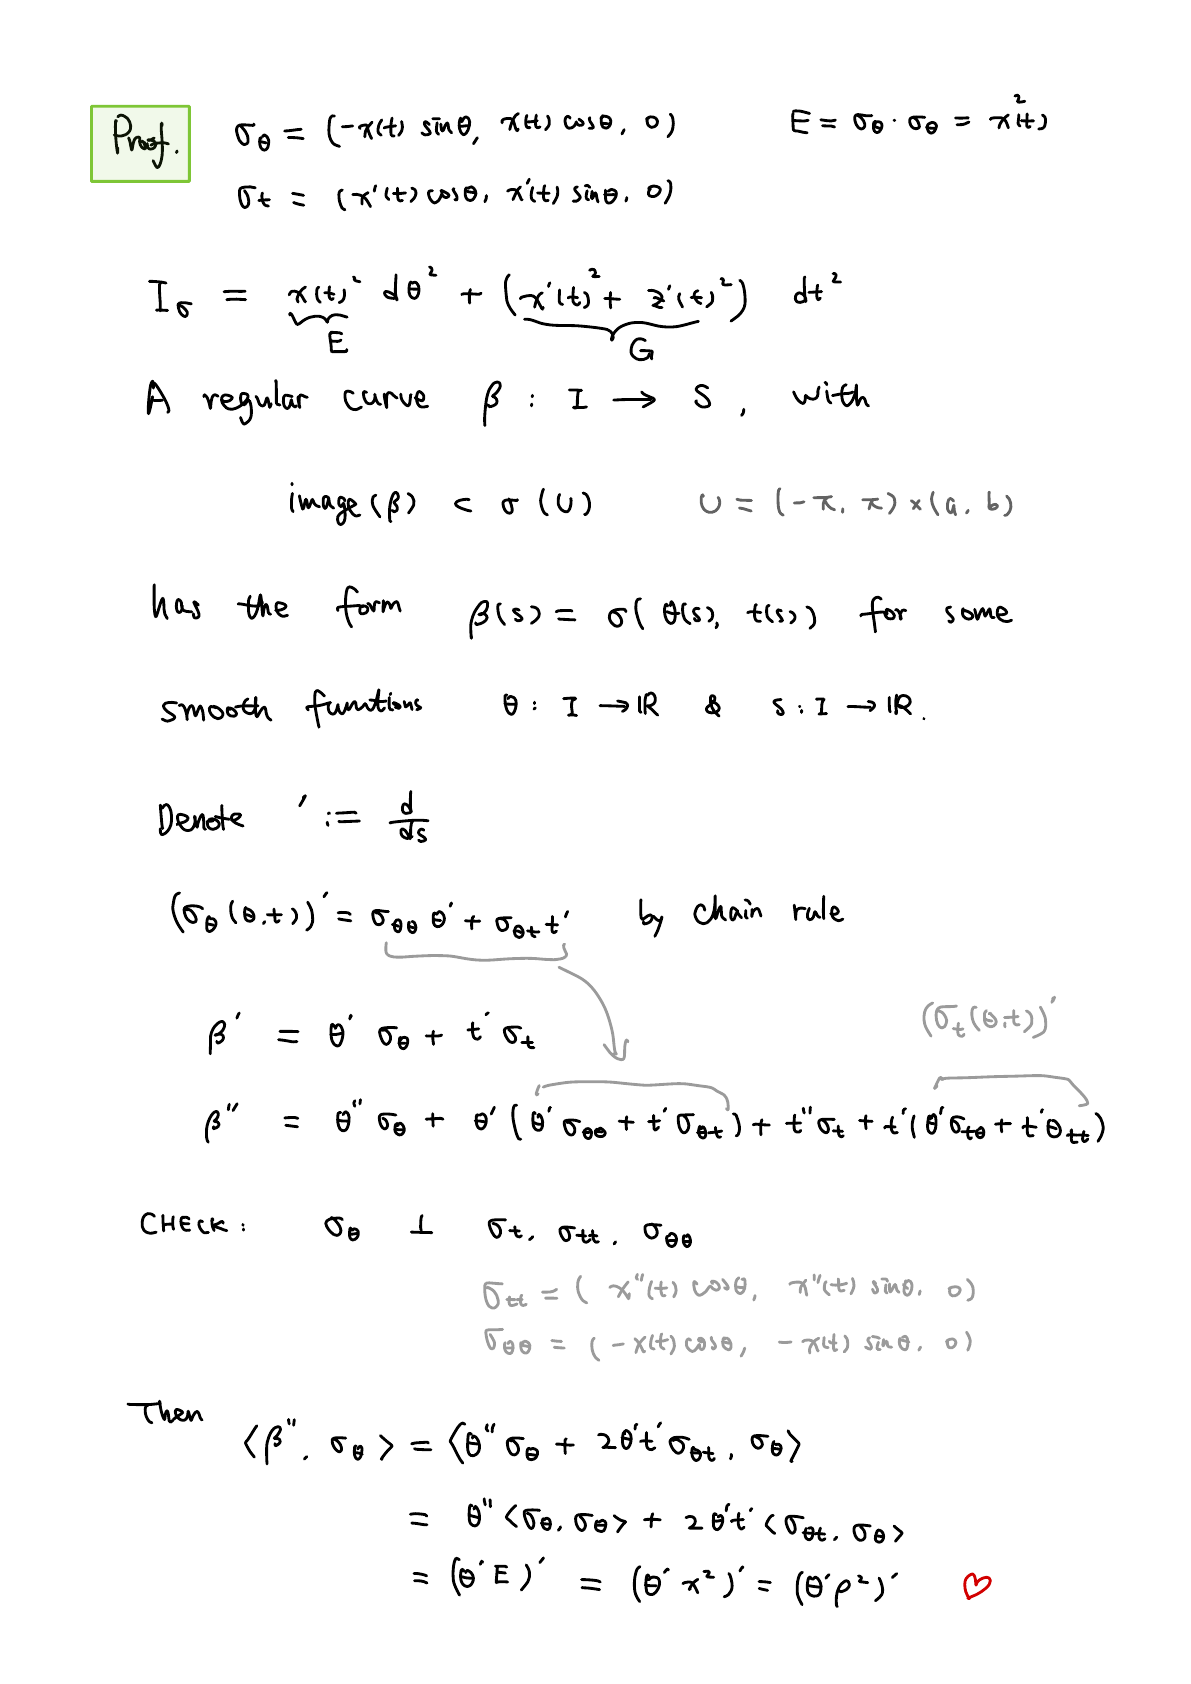 Proof. σ_θ = (-x(t) sinθ, x(t) cosθ, 0) E = σ_θ · σ_θ = x(t)²
σ_t = (x'(t) cosθ, x'(t) sinθ, 0)
I_σ = x(t)² dθ² + (x'(t)² + z'(t)²) dt²
E G
A regular curve β : I → S, with
image(β) ⊂ σ(U) U = (-π, π) × (a, b)
has the form β(s) = σ(θ(s), t(s)) for some
smooth functions θ : I → ℝ & s : I → ℝ.
Denote ' := d/ds
(σ_θ(θ,t))' = σ_θθ θ' + σ_θt t' by chain rule
β' = θ' σ_θ + t' σ_t (σ_t(θ,t))'
β'' = θ'' σ_θ + θ' (θ' σ_θθ + t' σ_θt) + t'' σ_t + t' (θ' σ_tθ + t' θ_tt)
CHECK : σ_θ ⊥ σ_t, σ_tt, σ_θθ
σ_tt = (x''(t) cosθ, x''(t) sinθ, 0)
σ_θθ = (-x(t) cosθ, -x(t) sinθ, 0)
Then
⟨β'', σ_θ⟩ = ⟨θ'' σ_θ + 2θ't' σ_θt, σ_θ⟩
= θ'' <σ_θ, σ_θ> + 2θ't' <σ_θt, σ_θ>
= (θ' E)' = (θ' x²)' = (θ' ρ²)' ♡